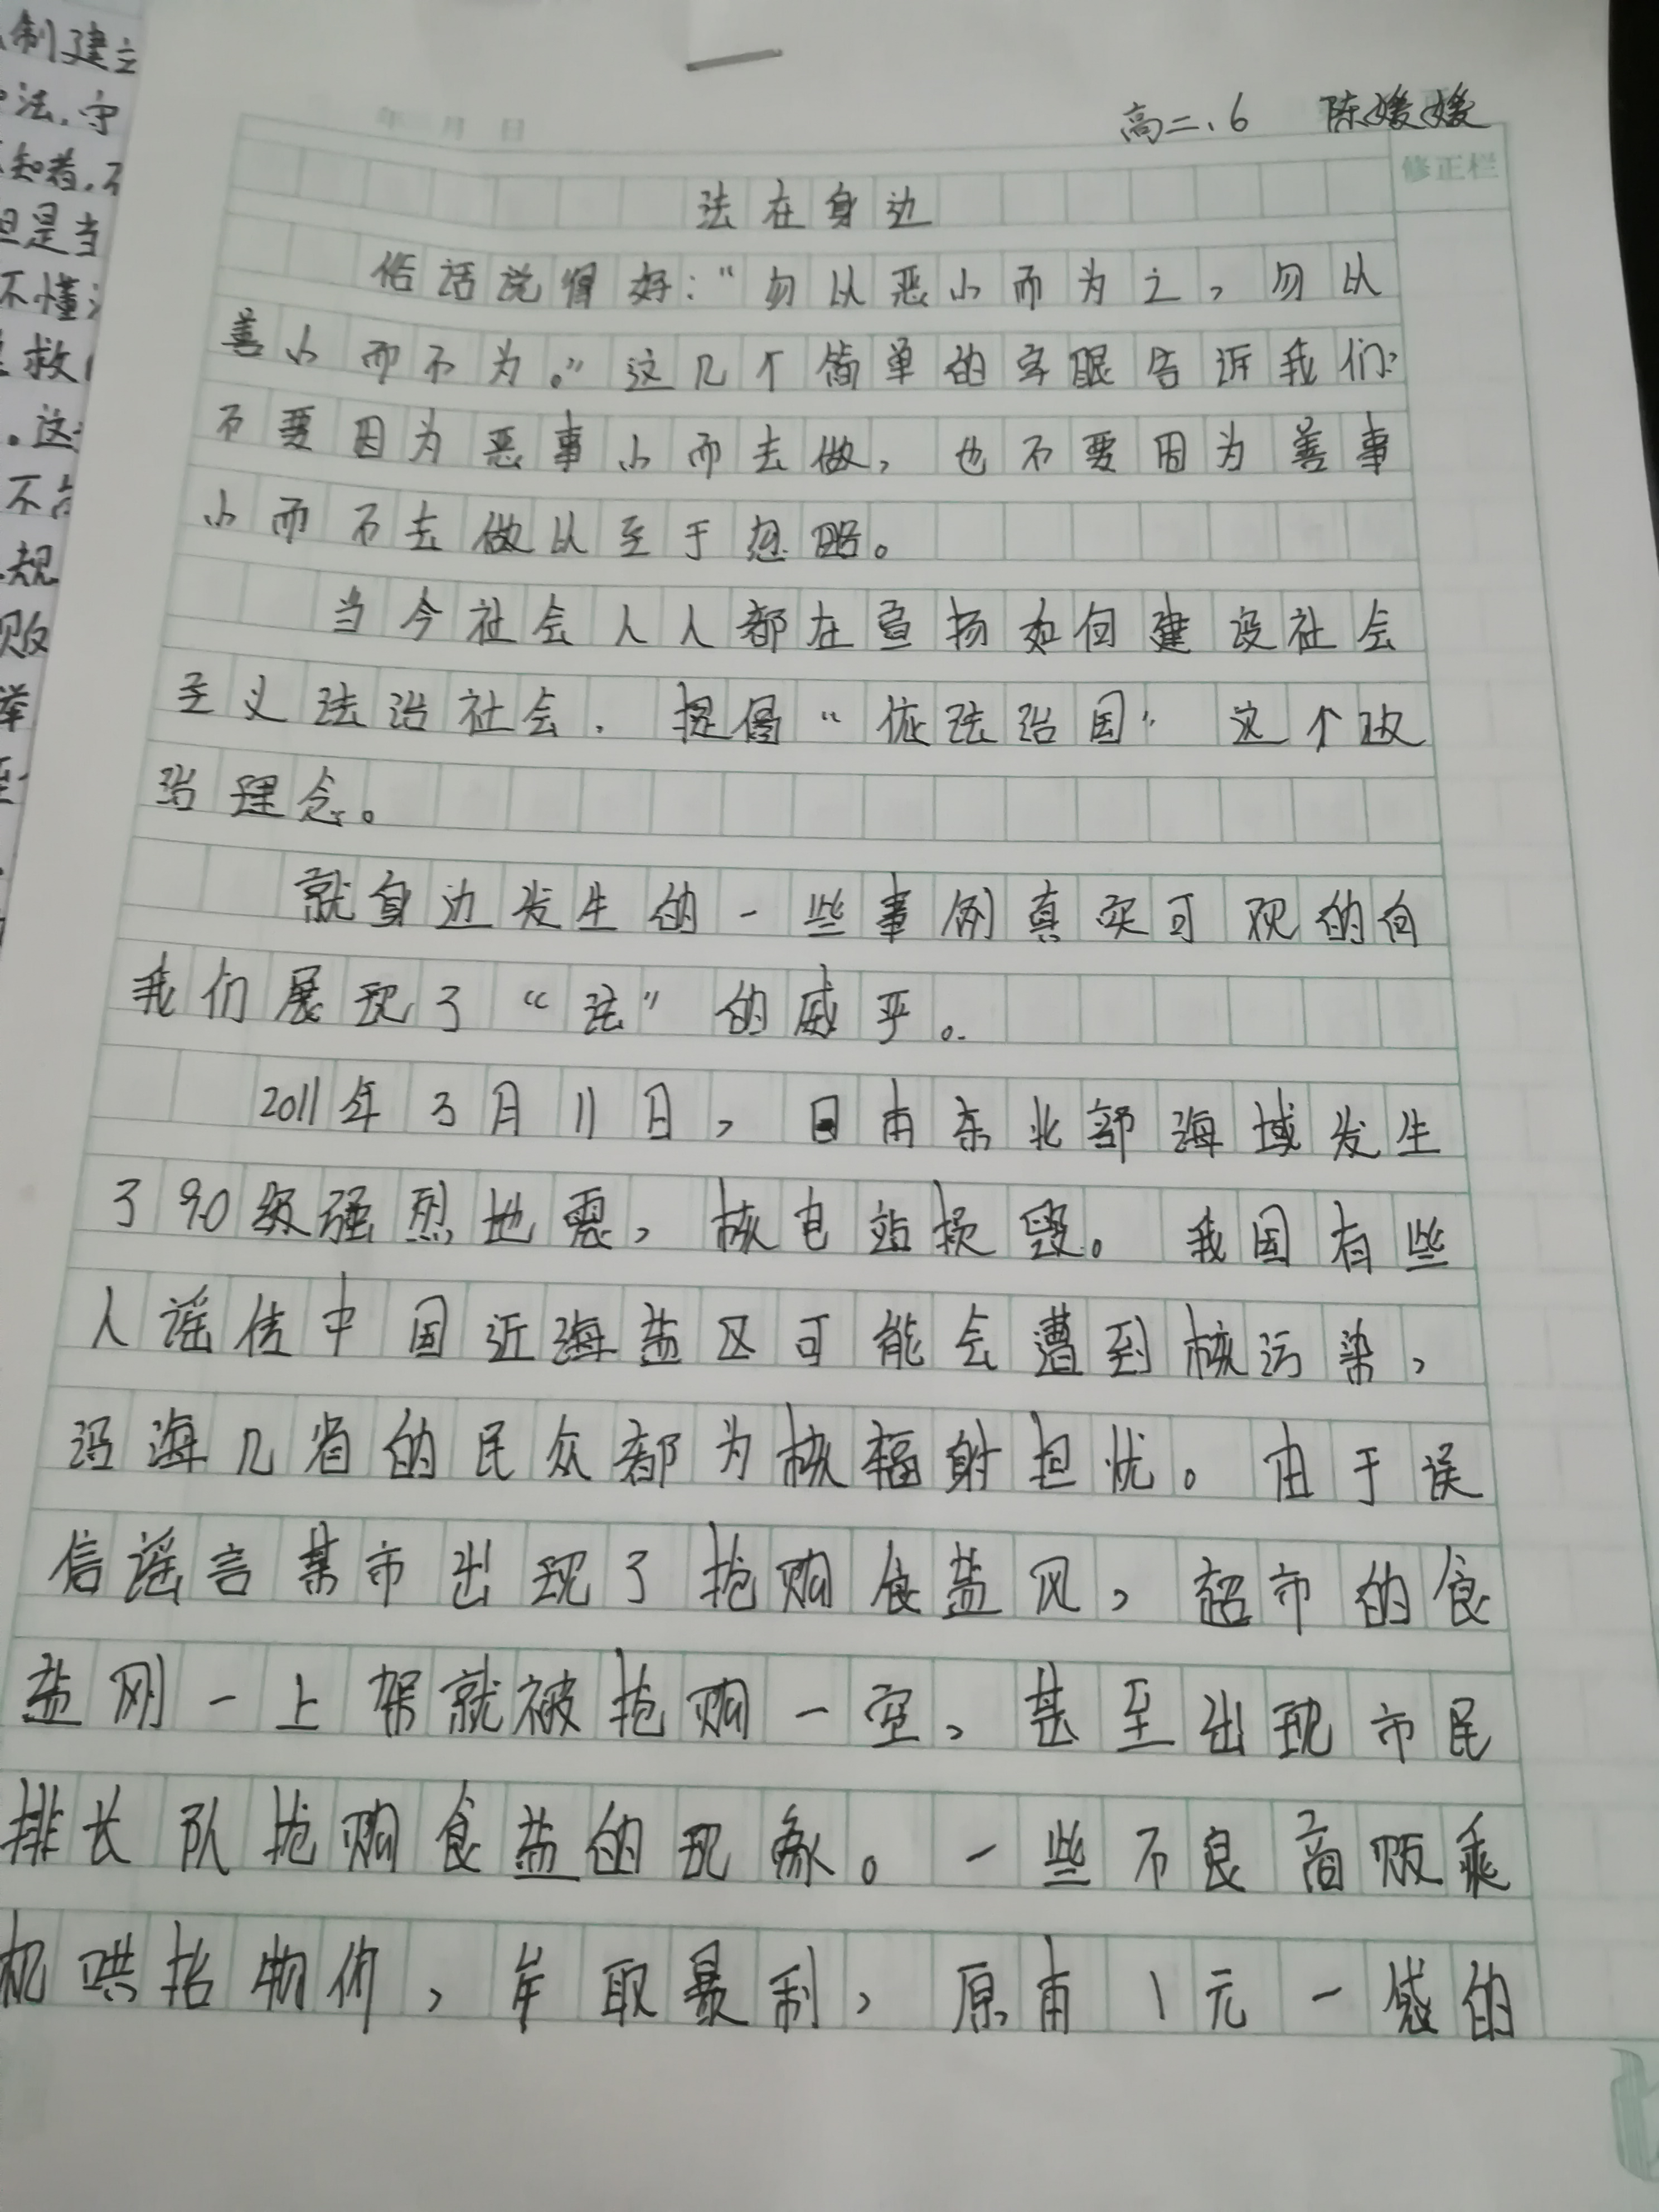 高二、6 陈媛媛
年 月 日
修正栏
法在身边
俗话说得好:“勿以恶小而为之,勿以
善小而不为。”这几个简单的字眼告诉我们:
不要因为恶事小而去做,也不要因为善事
小而不去做以至于忽略。
当今社会人人都在宣扬如何建设社会
主义法治社会.提倡“依法治国”这个政
治理念。
就身边发生的一些事例真实可观的向
我们展现了“法”的威严。
2011年3月11日,日本东北部海域发生
了9.0级强烈地震,核电站损毁。我国有些
人谣传中国近海盐区可能会遭到核污染,
沿海几省的民众都为核辐射担忧。由于误
信谣言某市出现了抢购食盐风,超市的食
盐刚一上架就被抢购一空,甚至出现市民
排长队抢购食盐的现象。一些不良商贩乘
机哄抬物价,牟取暴利,原本1元一袋的
制建立
法.守
知者.不
但是当
不懂
救
。这
不
规
败